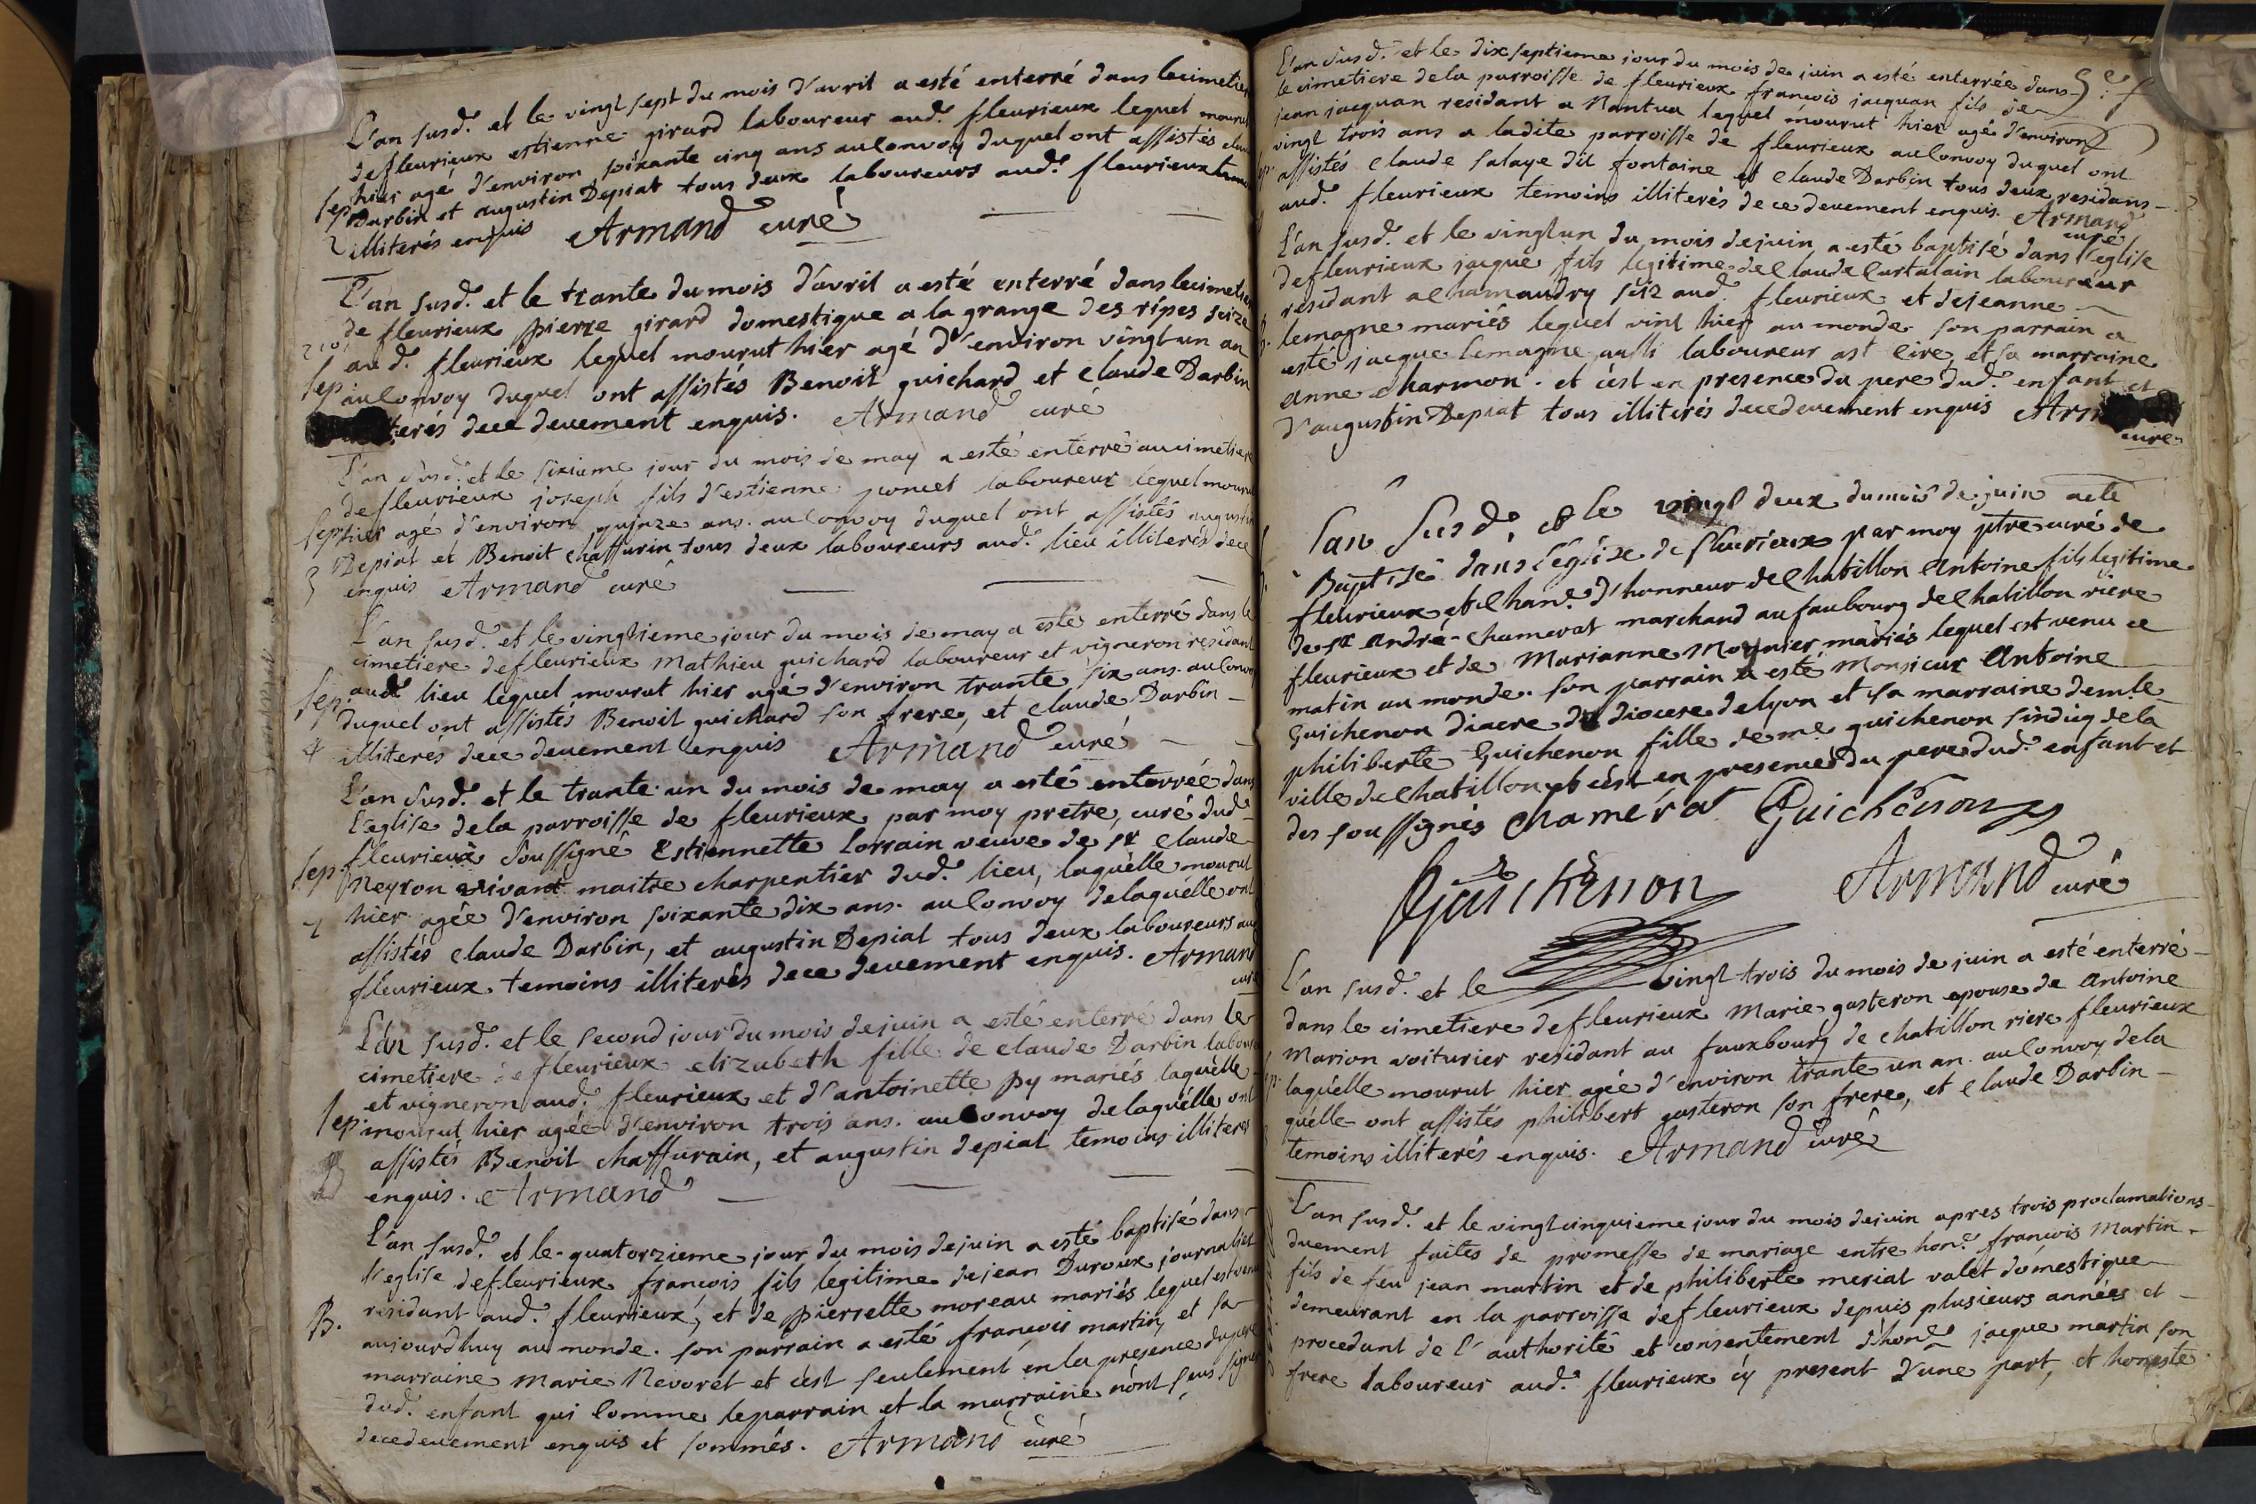 L'an susd. et le vingt sept du mois d'avril a esté enterré dans lecimetier
de fleurieux estienne girard laboureur aud. fleurieux lequel mourut
hier agé d'environ soixante cinq ans auConvoy duquel ont assistés
Sep
Darbin et augustin Depiat tous deux laboureurs aud. fleurieux
illiterés enquis Armand curé
L'an susd. et le trante dumois d'avril a esté enterré dans lecimetier
de fleurieux pierre girard domestique a la grange des ripes
aud. fleurieux lequel mourut hier agé d'environ vingtun an
Sep
auConvoy duquel ont assistés Benoit guichard et claude Darbin
terés dece deuement enquis. Armand curé
L'an susd. et le sixieme jour du mois de may a esté enterré aucimetiere
de fleurieux joseph fils d'estienne poncet laboureur lequel mourut
Sep hier agé d'environ quinze ans. auConvoy duquel ont assistés augustin
3 Depiat et Benoit chaffurin tous deux laboureurs aud. lieu illiterés dece
enquis Armand curé
L'an susd. et le vingtieme jour du mois de may a esté enterré dans le
cimetiere de fleurieux Mathieu guichard laboureur et vigneron residant
Sep. aud. lieu lequel mourut hier agé d'environ trante six ans. auConvoy
duquel ont assistés Benoit guichard son frere, et claude Darbin
4 illiterés dece deuement enquis Armand curé
L'an susd. et le trante un du mois de may a esté enterrée dans
l'eglise dela parroisse de fleurieux par moy pretre, curé dud.
fleurieux soussigné Estiennette Lorrain veuve de sr claude
Sep Neyron vivant maitre charpentier dud. lieu, laquelle mourut
hier agée d'environ soixante dix ans. auConvoy delaquelle ont
assistés claude Darbin, et augustin Depiat tous deux laboureurs aud
fleurieux temoins illiterés dece deuement enquis. Armand
curé
L'an susd. et le second jour du mois dejuin a esté enterré dans le
cimetiere de fleurieux elizabeth fille de claude Darbin
et vigneron aud. fleurieux et d'antoinette py mariés laquelle
Sep mourut hier agée d'environ trois ans. auConvoy delaquelle ont
assistés Benoit chaffurain, et augustin depiat temoins illiterés
enquis. Armand
L'an susd. et le quatorzieme jour du mois dejuin a esté baptisé dans
l'eglise defleurieux francois fils legitime dejean Duroux journalier
B. residant aud. fleurieux, et de pierrette moreau mariés lequel est venu
aujourdhuy au monde. son parrain a esté francois martin, et sa
marraine Marie Nevoret et c'est seulement en la presence dupere
dud. enfant qui Comme leparrain et la marraine n'ont sçus signer
dece deuement enquis et sommés. Armand curé
L'an susd. et le dix septieme jour du mois de juin a esté enterrée dans
le cimetiere dela parroisse de fleurieux francois jacquan fils de
jean jacquan residant a Nantua lequel mourut hier agé d'environ
vingt trois ans a ladite parroisse de fleurieux auConvoy duquel ont
assistés claude salaye dit fontaine et claude Darbin tous deux residans
aud. fleurieux temoins illiterés de ce deuement enquis. Armand
curé
L'an susd. et le vingtun du mois dejuin a esté baptisé dans l'eglise
de fleurieux jacque fils legitime de Claude Curtalain laboureur
residant a Chamaudry aud. fleurieux et dejeanne
lemogne mariés lequel vint hier au monde son parrain a
esté jacque lemogne aussi laboureur et sa marraine
anne charmon. et c'est en presence du pere dud. enfant et
d'augustin Depiat tous illiterés dece deuement enquis Arm
curé
L'an Susd. et le vingt deux dumois de juin a eté
Baptisé dans l'eglise de fleurieux par moy ptre curé de
fleurieux et Chane. d'honneur de Chatillon Antoine fils legitime
de sr André Chamerat marchand au faubourg de Chatillon riere
fleurieux et de Marianne Monnier mariés lequel est venu ce
matin au monde. son parrain a esté Monsieur Antoine
Guichenon diacre du diocese delyon et sa marraine demlle
philiberte Guichenon fille de me guichenon sindicq dela
ville de Chatillon et c'est en presence du pere dud. enfant et
des soussignés Chamérat Guichenon
Guichenon Armand curé
L'an susd. et le vingt trois du mois de juin a esté enterré
dans le cimetiere de fleurieux Marie gasteron epouse de Antoine
Marion voiturier residant au fauxbourg de chatillon riere fleurieux
laquelle mourut hier agée d'environ trante un an. auConvoy dela
quelle ont assistés philibert gasteron son frere, et claude Darbin
temoins illiterés enquis. Armand curé
L'an susd. et le vingtcinquieme jour du mois dejuin apres trois proclamations
duement faites de promesse de mariage entre hone. francois Martin
fils de feu jean martin et de philiberte meriat valet domestique
demeurant en la parroisse defleurieux depuis plusieurs années et
procedant de l'authorité et consentement d'hone. jacque martin son
frere laboureur aud. fleurieux cy present d'une part, et honeste